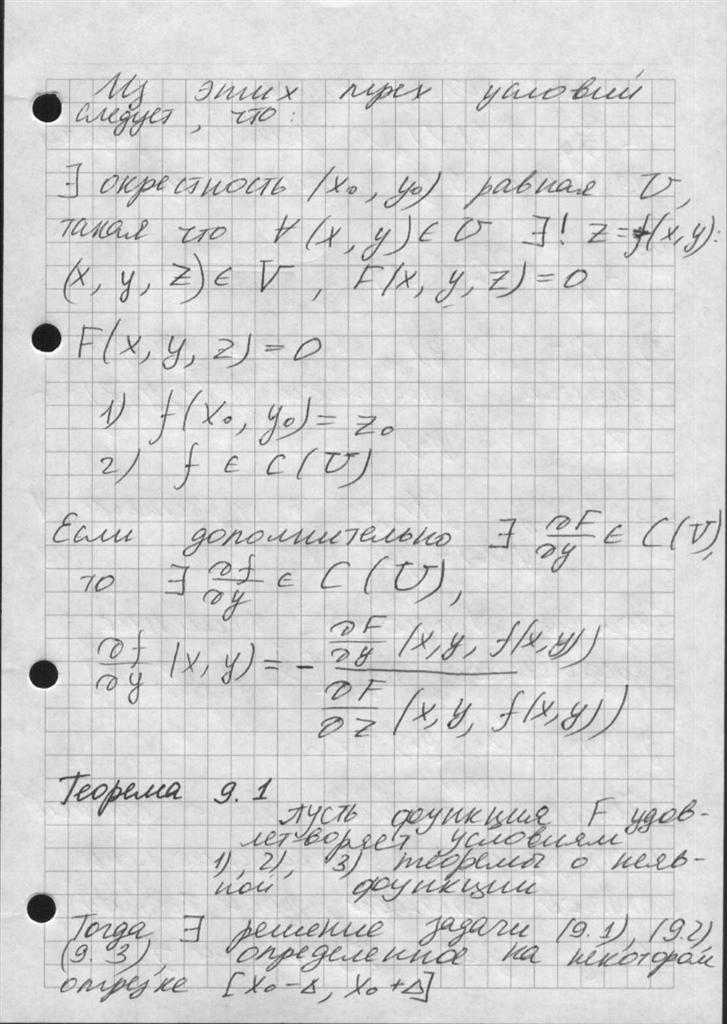 Из этих трех условий
следует, что:
∃ окрестность (x₀, y₀) равная U,
такая что ∀(x, y) ∈ U ∃! z = f(x, y):
(x, y, z) ∈ V, F(x, y, z) = 0
F(x, y, z) = 0
1) f(x₀, y₀) = z₀
2) f ∈ C(U)
Если дополнительно ∃ ∂F/∂y ∈ C(U),
то ∃ ∂f/∂y ∈ C(U),
∂f/∂y (x, y) = - ∂F/∂y (x, y, f(x, y)) / ∂F/∂z (x, y, f(x, y))
Теорема 9.1
пусть функция F удов-
летворяет условиям
1), 2), 3) теоремы о неяв-
ной функции
Тогда ∃ решение задачи (9.1), (9.2)
(9.3), определенное на некотором
отрезке [x₀-Δ, x₀+Δ]